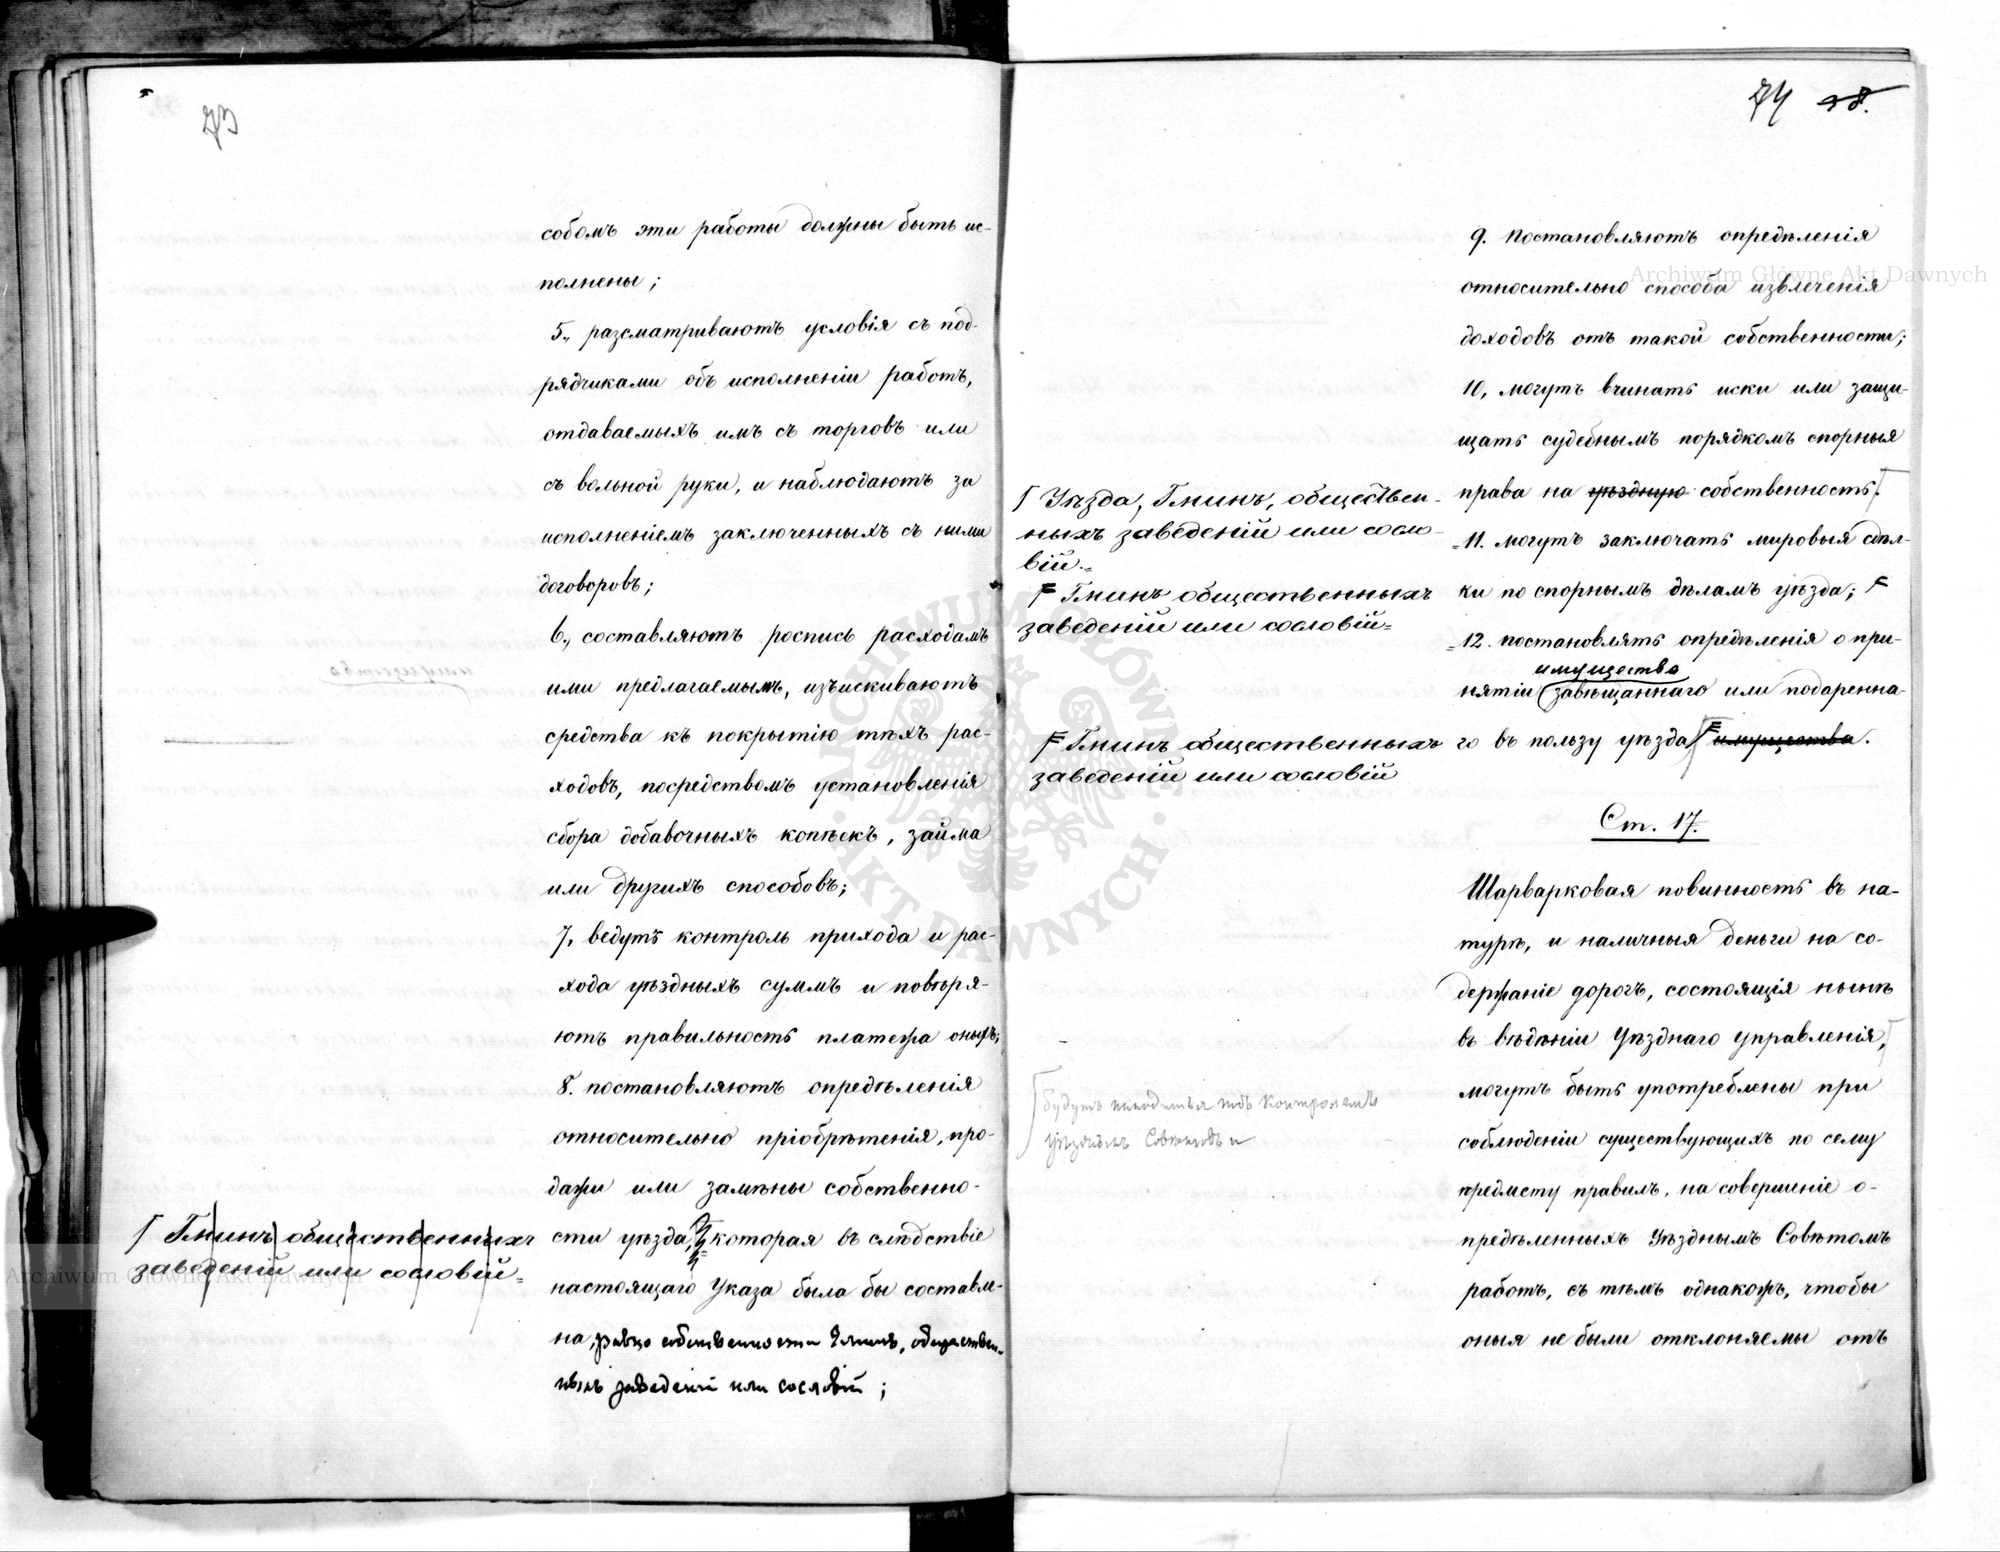 73
собомъ эти работы должны быть ис-
полнены;
5., разсматриваютъ условія съ под-
рядчиками объ исполненіи работъ,
отдаваемыхъ имъ съ торговъ или
съ вольной руки, и наблюдаютъ за
исполненіемъ заключенныхъ съ ними
договоровъ;
6., составляютъ роспись расходамъ
ими предлагаемымъ, изъискиваютъ
средства къ покрытію тѣхъ рас-
ходовъ, посредствомъ установленія
сбора добавочныхъ копѣекъ, займа
или другихъ способовъ;
7, ведутъ контроль прихода и рас-
хода уѣздныхъ суммъ и повѣря-
ютъ правильность платежа оныхъ;
8. постановляютъ опредѣленія
относительно пріобрѣтенія, про-
дажи или замѣны собственно-
сти уѣзда, которая въ слѣдствіе
настоящаго Указа была бы составле-
на, равно собственности Гминъ, обществен-
ныхъ заведеній или сословій;
Гминъ общественныхъ
заведеній или сословій
74 38.
9. постановляютъ опредѣленія
относительно способа извлеченія
доходовъ отъ такой собственности;
10, могутъ вчинать иски или защи-
щать судебнымъ порядкомъ спорныя
права на уѣздную собственность
11. могутъ заключать мировыя сдѣл-
ки по спорнымъ дѣламъ уѣзда;
12. постановлять опредѣленія о при-
имущества
нятіи завѣщаннаго или подаренна-
го въ пользу уѣзда имущества.
Уѣзда, Гминъ, обществен-
ныхъ заведеній или сосло-
вій.
Гминъ общественныхъ
заведеній или сословій
Гминъ общественныхъ
заведеній или сословій
Ст. 17.
Шарварковая повинность въ на-
турѣ, и наличныя деньги на со-
держаніе дорогъ, состоящія нынѣ
въ вѣдѣніи Уѣзднаго управленія,
могутъ быть употреблены при
соблюденіи существующихъ по сему
предмету правилъ, на совершеніе о-
предѣленныхъ Уѣзднымъ Совѣтомъ
работъ, съ тѣмъ однакожъ, чтобы
оныя не были отклоняемы отъ
будутъ находиться подъ контролемъ
уѣздныхъ Совѣтовъ и
Archiwum Główne Akt Dawnych
Archiwum Główne Akt Dawnych
ARCHIWUM GŁÓWNE · AKT DAWNYCH ·